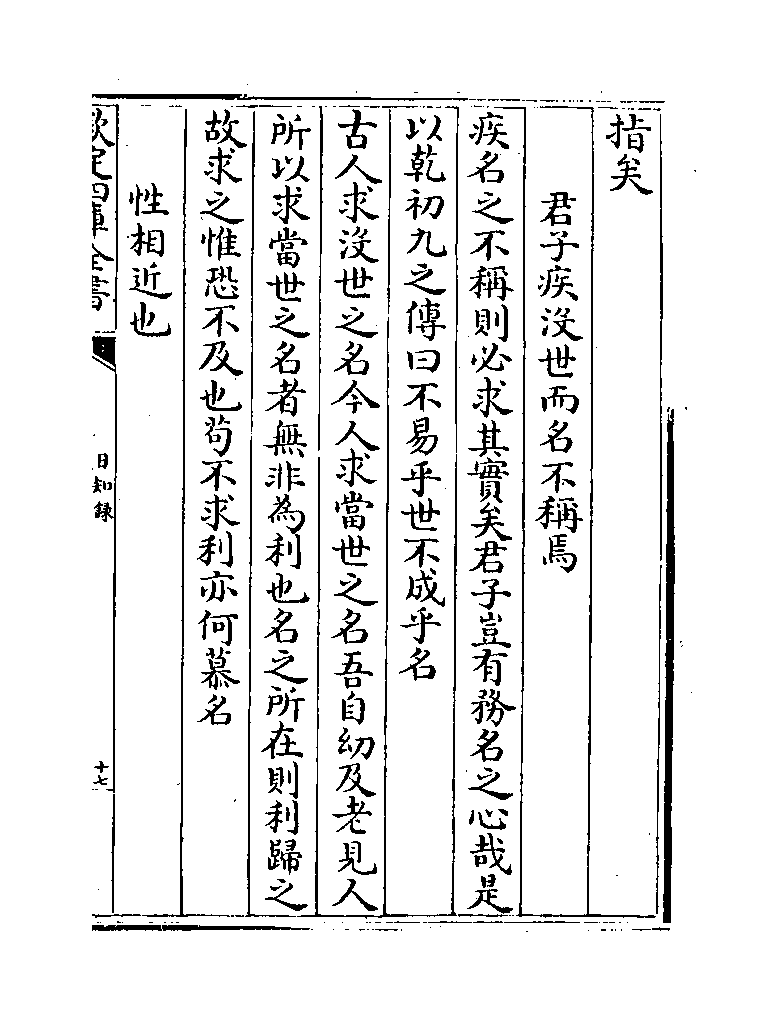 指矣
君子疾没世而名不稱焉
疾名之不稱則必求其實矣君子豈有務名之心哉是
以乾初九之傳曰不易乎世不成乎名
古人求没世之名今人求當世之名吾自幼及老見人
所以求當世之名者無非為利也名之所在則利歸之
故求之惟恐不及也茍不求利亦何慕名
性相近也
欽定四庫全書
日知録
十七